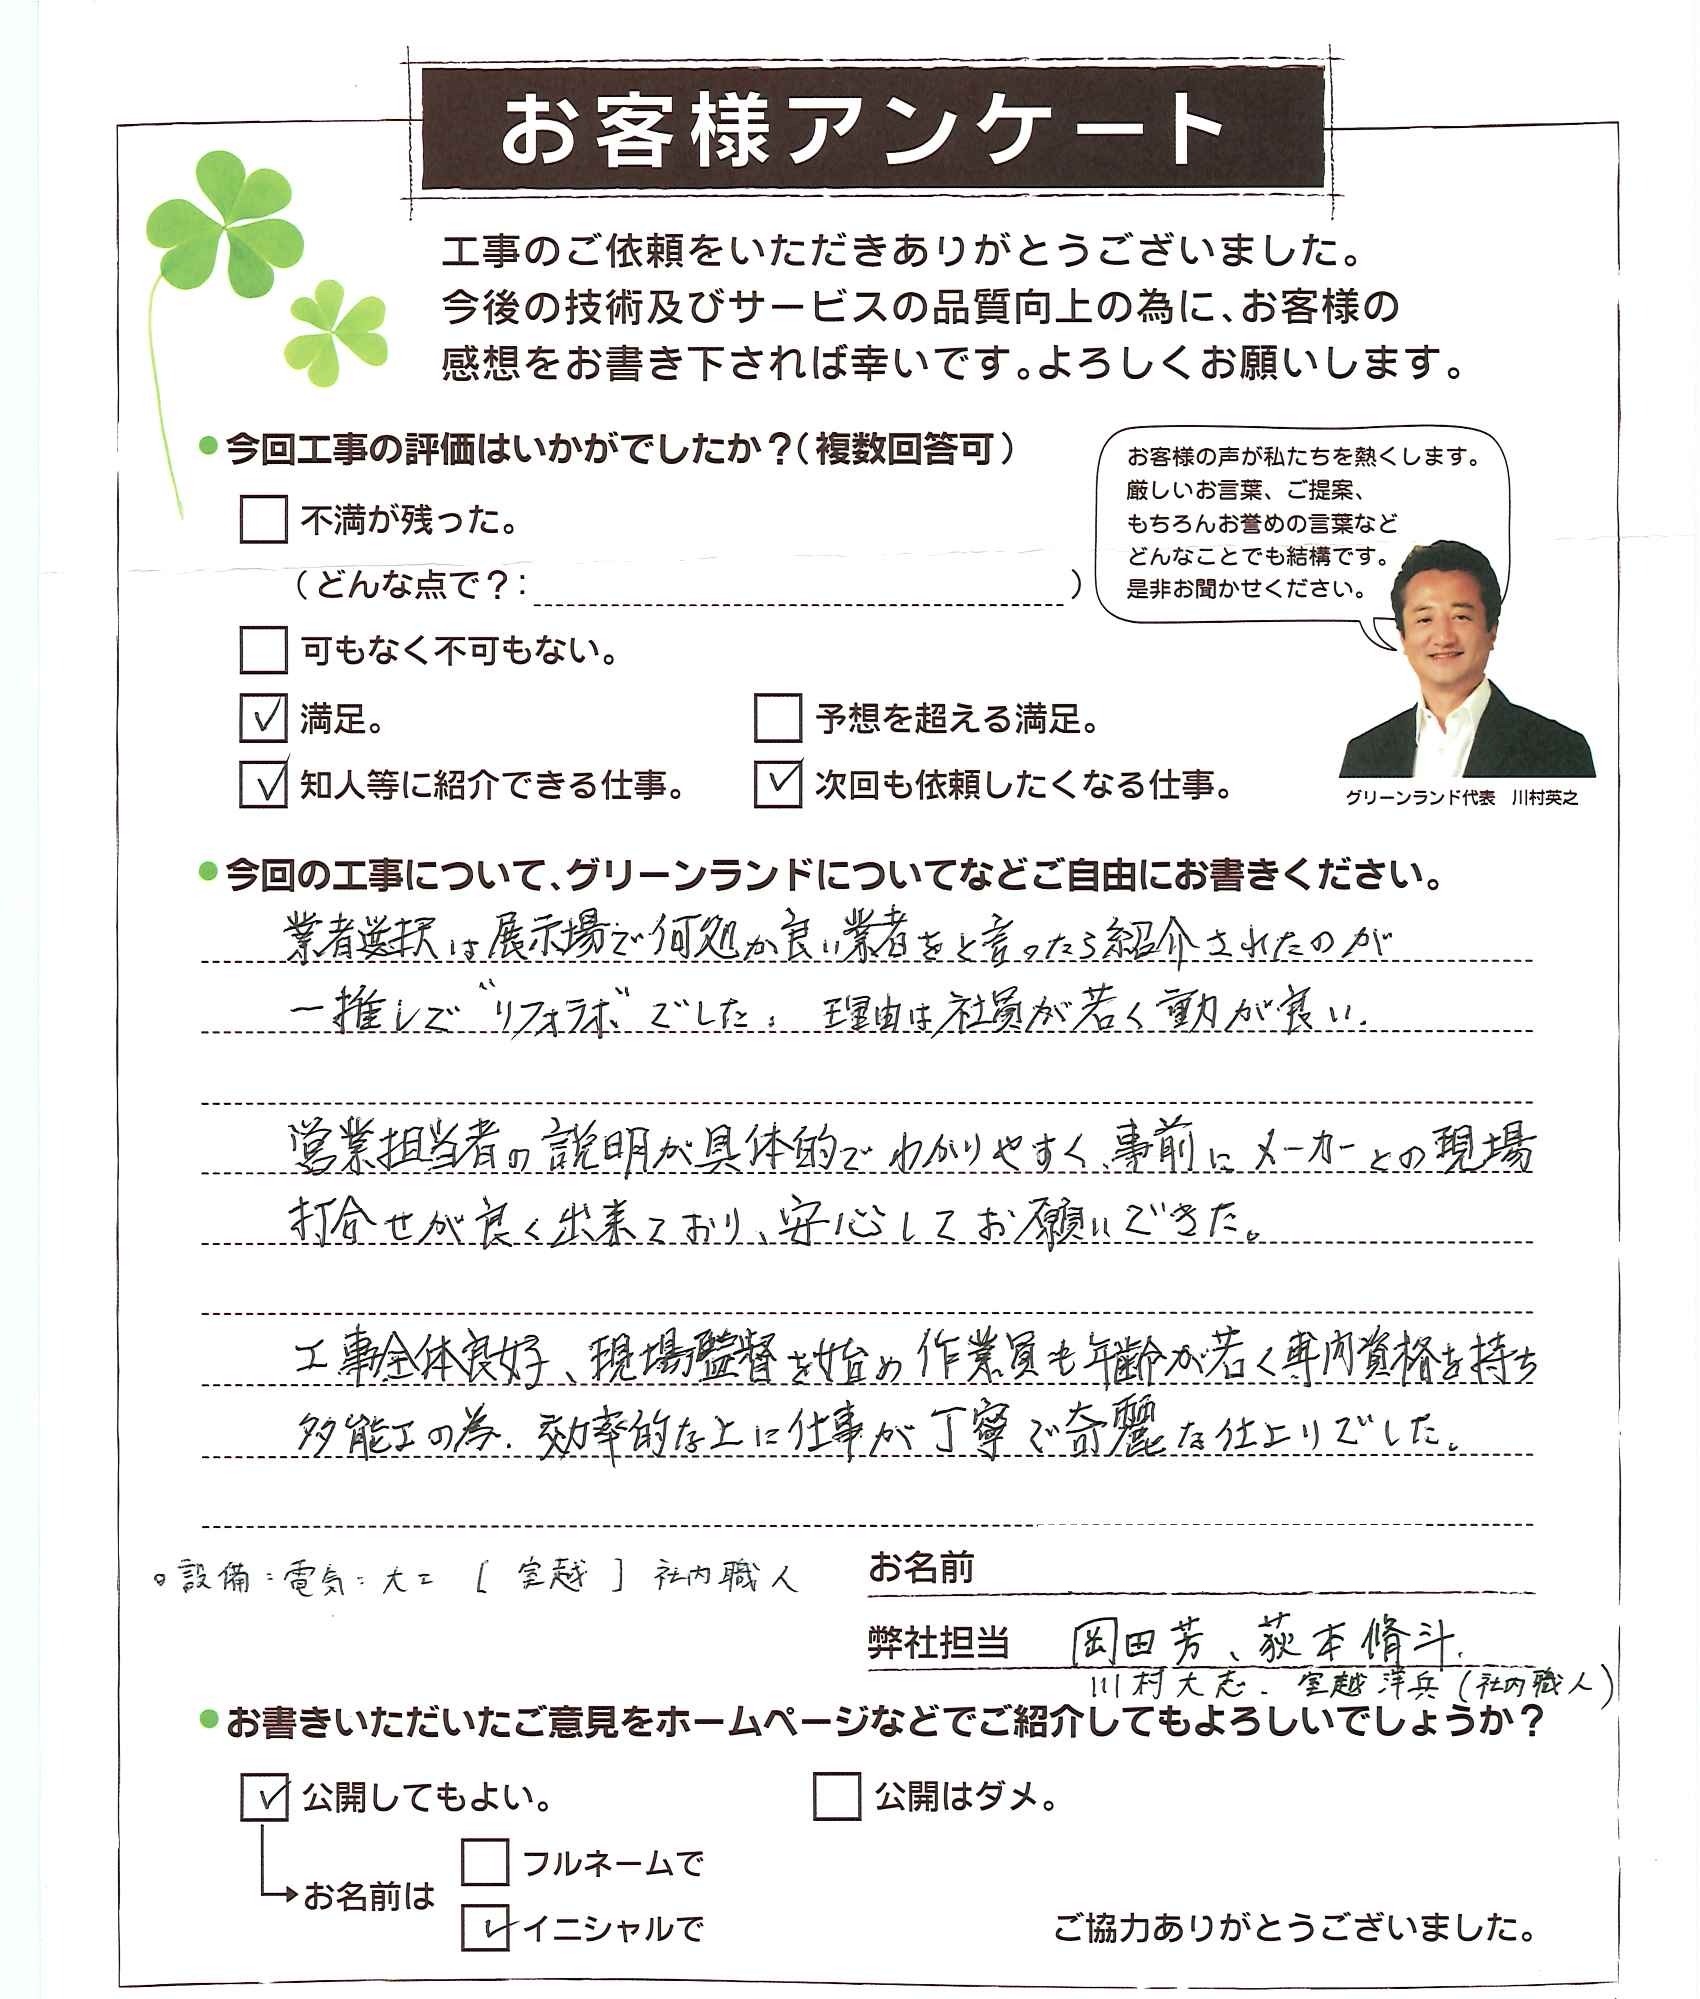 お客様アンケート
工事のご依頼をいただきありがとうございました。
今後の技術及びサービスの品質向上の為に、お客様の
感想をお書き下されば幸いです。よろしくお願いします。
今回工事の評価はいかがでしたか？（複数回答可）
不満が残った。
（どんな点で？:                    ）
可もなく不可もない。
満足。
予想を超える満足。
知人等に紹介できる仕事。
次回も依頼したくなる仕事。
お客様の声が私たちを熱くします。
厳しいお言葉、ご提案、
もちろんお誉めの言葉など
どんなことでも結構です。
是非お聞かせください。
グリーンランド代表　川村英之
今回の工事について、グリーンランドについてなどご自由にお書きください。
業者選択は展示場で何処か良い業者をと言ったら紹介されたのが
一推しで"リフォラボ"でした。理由は社員が若く動が良い.
営業担当者の説明が具体的でわかりやすく、事前にメーカーとの現場
打合せが良く出来ており、安心してお願いできた。
工事全体良好、現場監督を始め作業員も年齢が若く専門資格を持ち
多能工の為、効率的な上に仕事が丁寧で奇麗な仕上りでした。
設備：電気：大工 [ 室越 ] 社内職人
お名前
弊社担当　岡田芳、荻本脩斗.
川村大志. 室越洋兵(社内職人)
お書きいただいたご意見をホームページなどでご紹介してもよろしいでしょうか？
公開してもよい。
公開はダメ。
お名前は
フルネームで
イニシャルで
ご協力ありがとうございました。